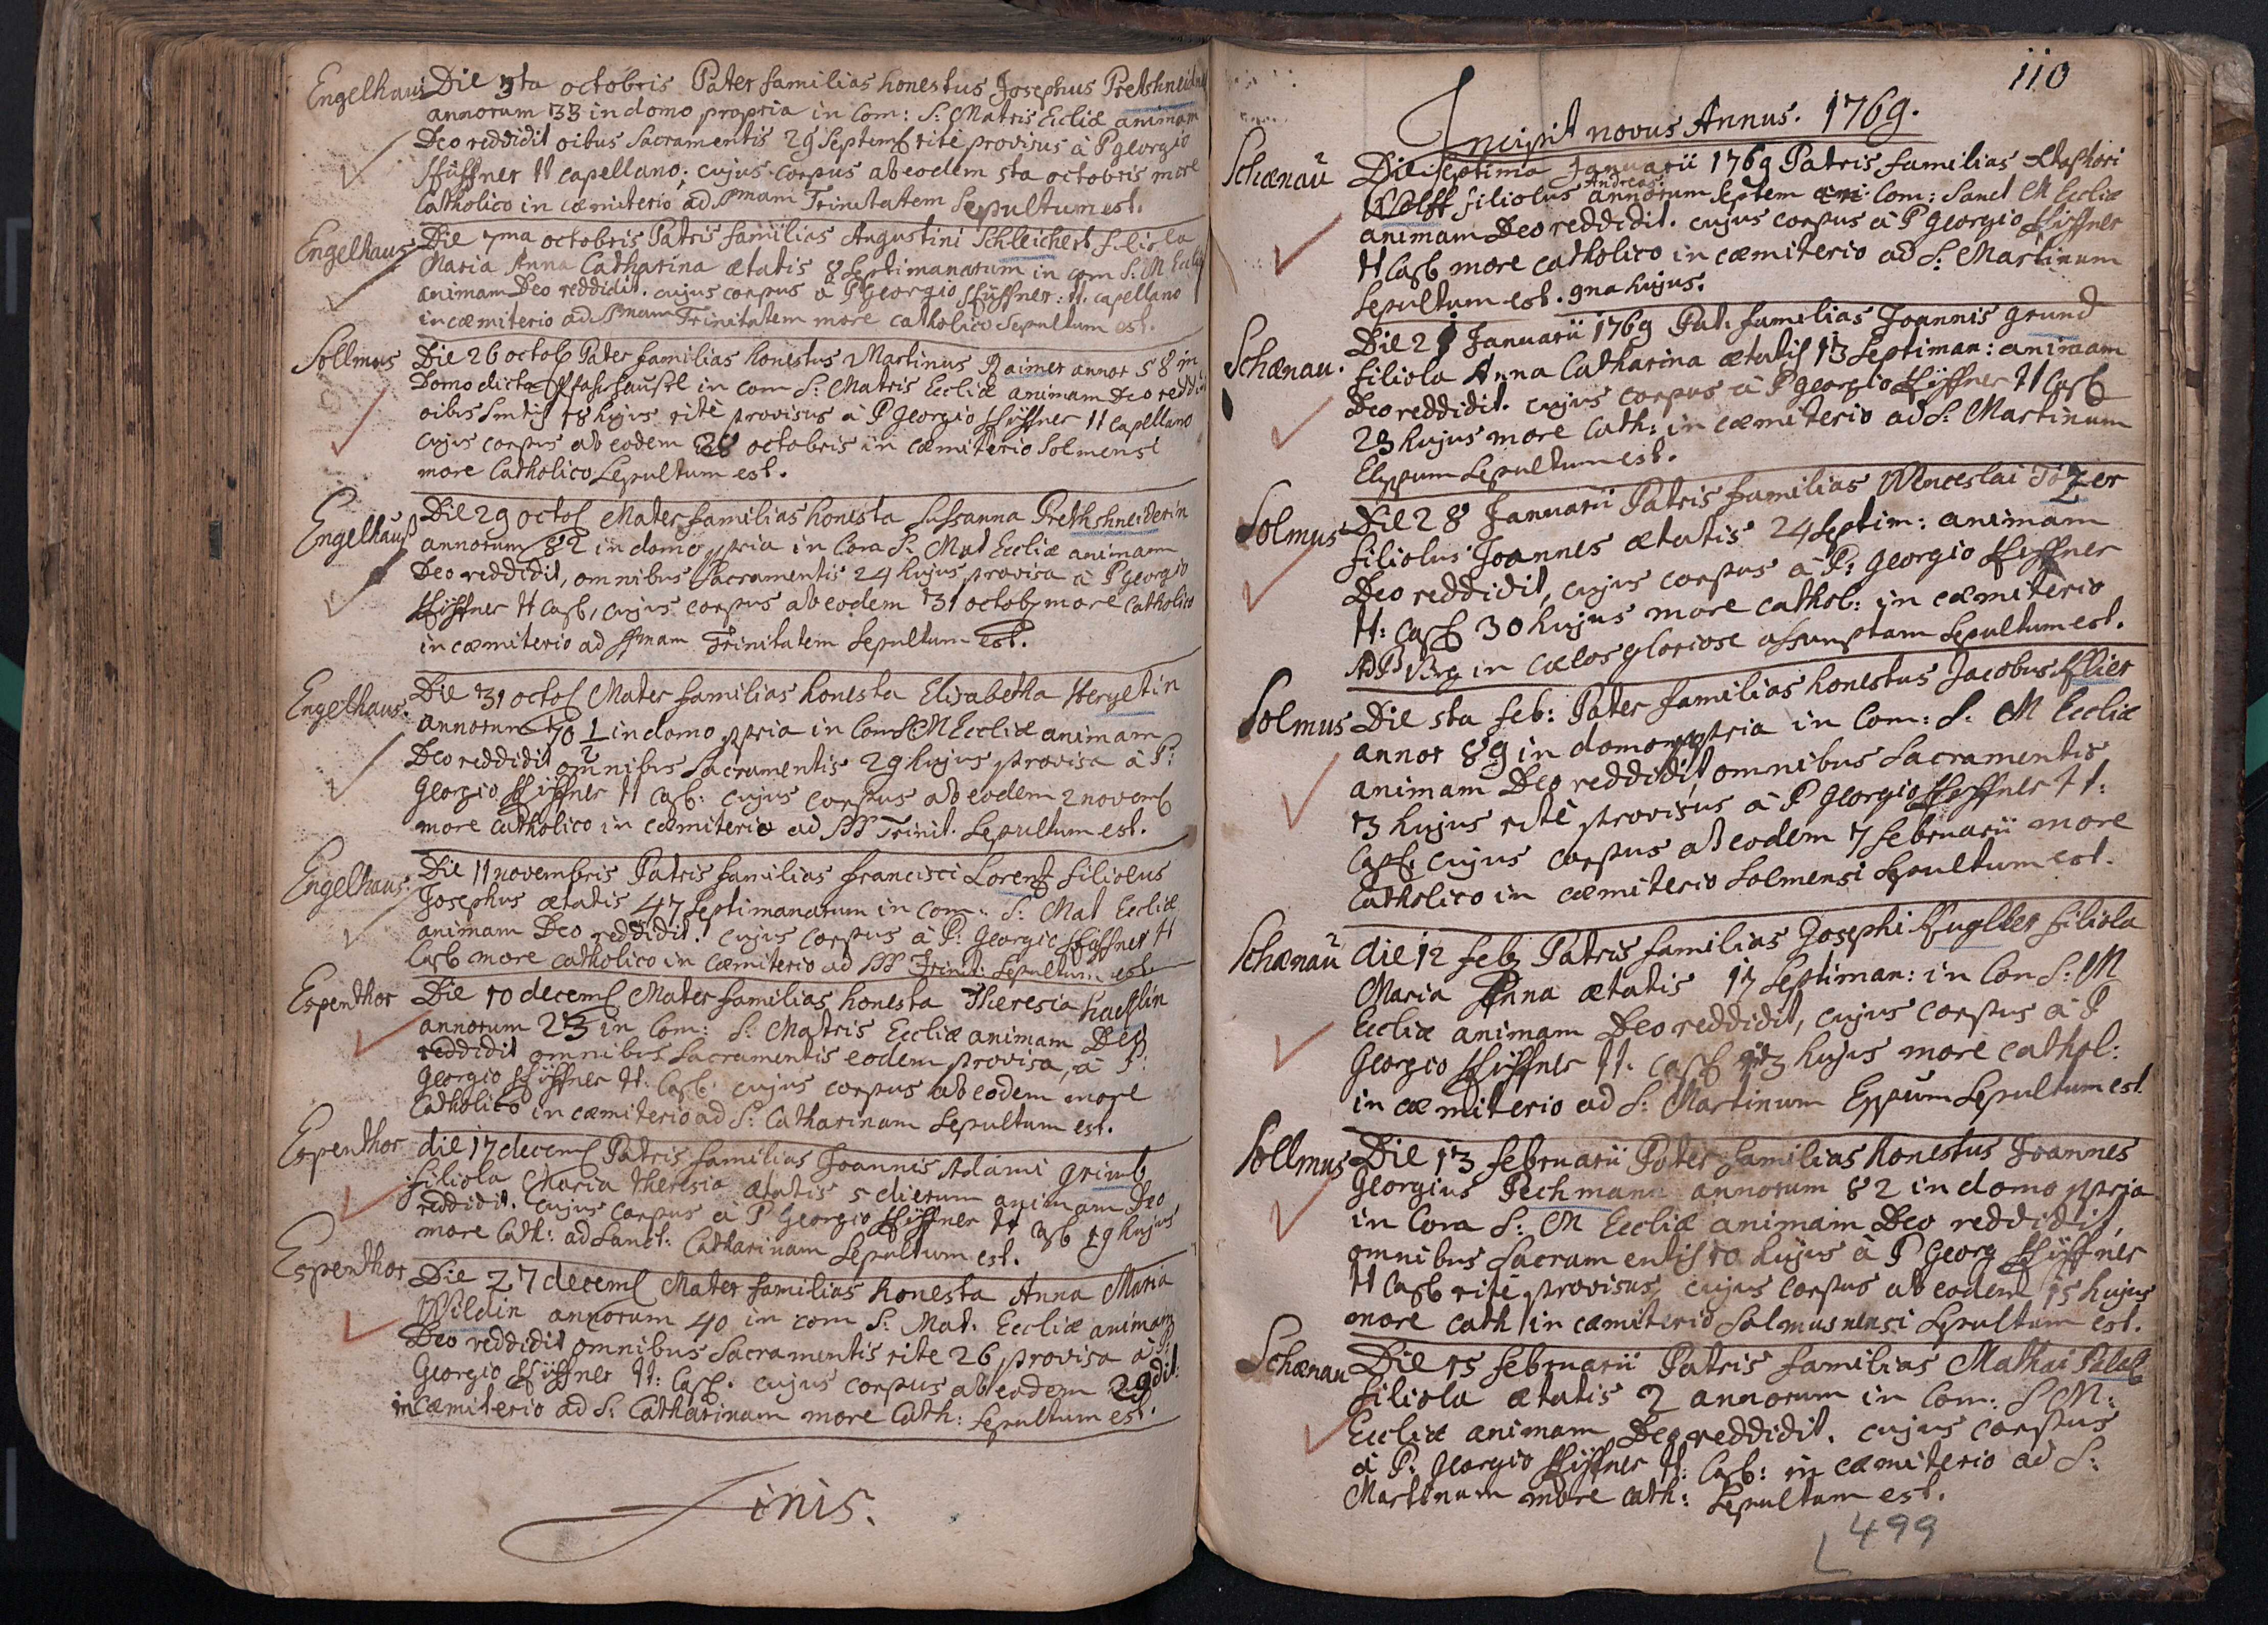 Engelhaus Die 3ta octobris Pater familias honestus Josephus Pretshneider
annorum 33 in domo propria in Com: S: Matris Eccliæ animam
Deo reddidit oibus Sacramentis 29 Septemb rite provisus à P georgio
tt capellano, cujus corpus ab eodem 5ta octobris more
Catholico in cæmiterio ad SSmam Trinitatem Sepultum est.
Engelhaus Die 7ma octobris Patris familias Augustini Schleichert filiola
Maria Anna Catharina ætatis 8 Septimanarum in com S: M Eccliæ
animam Deo reddidit. cujus corpus à P Georgio : tt. capellano
in cæmiterio ad SSmam Trinitatem more catholico Sepultum est.
Sollmus Die 26 octob Pater familias honestus Martinus annor 58 in
Domo dicta in com S: Matris Eccliæ animam Deo reddidit
oibus Smtis 18 hujus ritè provisus à P Georgio tt capellano
cujus corpus ab eodem 28 octobris in cæmiterio Solmensi
more Catholico Sepultum est.
Engelhauß Die 29 octob Mater familias honesta Susanna Prethshneiderin
annorum 82 in domo ppria in Com S: Mat Eccliæ animam
Deo reddidit, omnibus Sacramentis 24 hujus provisa à P Georgio
tt Cap, cujus corpus ab eodem 31 octob more Catholico
in cæmiterio ad SSmam Trinitatem Sepultum est.
Engelhaus. Die 31 octob Mater familias honesta Elisabetha Hergetin
annorum 70 1/2 in domo ppria in Com S M Eccliæ animam
Deo reddidit omnibus Sacramentis 29 hujus provisa à P:
Georgio tt Cap: cujus corpus ab eodem 2 novemb
more catholico in cæmiterio ad SS Trinit. Sepultum est.
Engelhaus: Die 11 novembris Patris familias francisci Lorentz filiolus
Josephus ætatis 47 Septimanarum in com: S: Mat Eccliæ
animam Deo reddidit. cujus corpus à P: Georgio tt
Cap more catholico in Cæmiterio ad SS Trinit: Sepultum est.
Espenthor Die 10 decemb Mater familias honesta Theresia
annorum 23 in Com: S: Matris Eccliæ animam Deo
reddidit omnibus Sacramentis eodem provisa, à P:
Georgio tt: Cap: cujus corpus ab eodem more
Catholico in cæmiterio ad S: Catharinam Sepultum est.
Espenthor die 17 decemb Patris familias Joannis Adami
filiola Maria theresia ætatis 5 dierum animam Deo
reddidit. cujus corpus à P Georgio tt Cap 19 hujus
more Cath: ad Sanct: Catharinam Sepultum est.
Espenthor Die 27 decemb Mater familias honesta Anna Maria
Wildin annorum 40 in com S: Mat: Eccliæ animam
Deo reddidit omnibus Sacramentis rite 26 provisa à P:
Georgio tt: Cap. cujus corpus ab eodem 29 dit:
in Cæmiterio ad S: Catharinam more Cath: Sepultum est.
Finis.
110
Incipit novus Annus. 1769.
Schænau Die septima Januarii 1769 Patris familias
Andreas
Wolff filiolus annorum Septem Com: Sanct M Eccliæ
animam Deo reddidit. cujus corpus à P Georgio
tt Cap more catholico in cæmiterio ad S: Martinum
Sepultum est. 9na hujus.
Schænau. Die 21 Januarii 1769 Pat. familias Joannis grund
filiola Anna Catharina ætatis 13 Septiman: animam
Deo reddidit. cujus corpus à P georgio tt Cap
23 hujus more Cath: in cæmiterio ad S: Martinum
Sepultum est.
Solmus Die 28 Januarii Patris familias Wenceslai
filiolus Joannes ætatis 24 Septim: animam
Deo reddidit, cujus corpus à P: Georgio
tt: Cap 30 hujus more cathol: in cæmiterio
in cælos gloriose assumptam Sepultum est.
Solmus Die 5ta feb: Pater familias honestus Jacobus
annor 89 in domo ppria in Com: S: M Eccliæ
animam Deo reddidit, omnibus Sacramentis
3 hujus ritè provisus à P Georgio tt:
Cap: cujus corpus ab eodem 7 februarii more
Catholico in cæmiterio Solmensi Sepultum est.
Schænau die 12 feb Patris familias Josephi filiola
Maria Anna ætatis 17 Septiman: in Com S: M
Eccliæ animam Deo reddidit, cujus corpus à P
Georgio tt. Cap 13 hujus more cathol:
in cæmiterio ad S: Martinum Eppum Sepultum est
Sollmus Die 13 februarii Pater familias honestus Joannes
Georgius Pechmann annorum 82 in domo ppria
in Com S: M Eccliæ animam Deo reddidit,
omnibus Sacramentis 10 hujus à P Georg
tt Cap rite provisus, cujus corpus ab eodem 15 hujus
more cath in cæmiterio Solmusnensi Sepultum est.
Schænau Die 15 februarii Patris familias Mathæi
filiola ætatis 2 annorum in Com: S M:
Eccliæ animam Deo reddidit. cujus corpus
à P: Georgio tt: Cap: in cæmiterio ad S:
Martinum more Cath: Sepultum est.
499